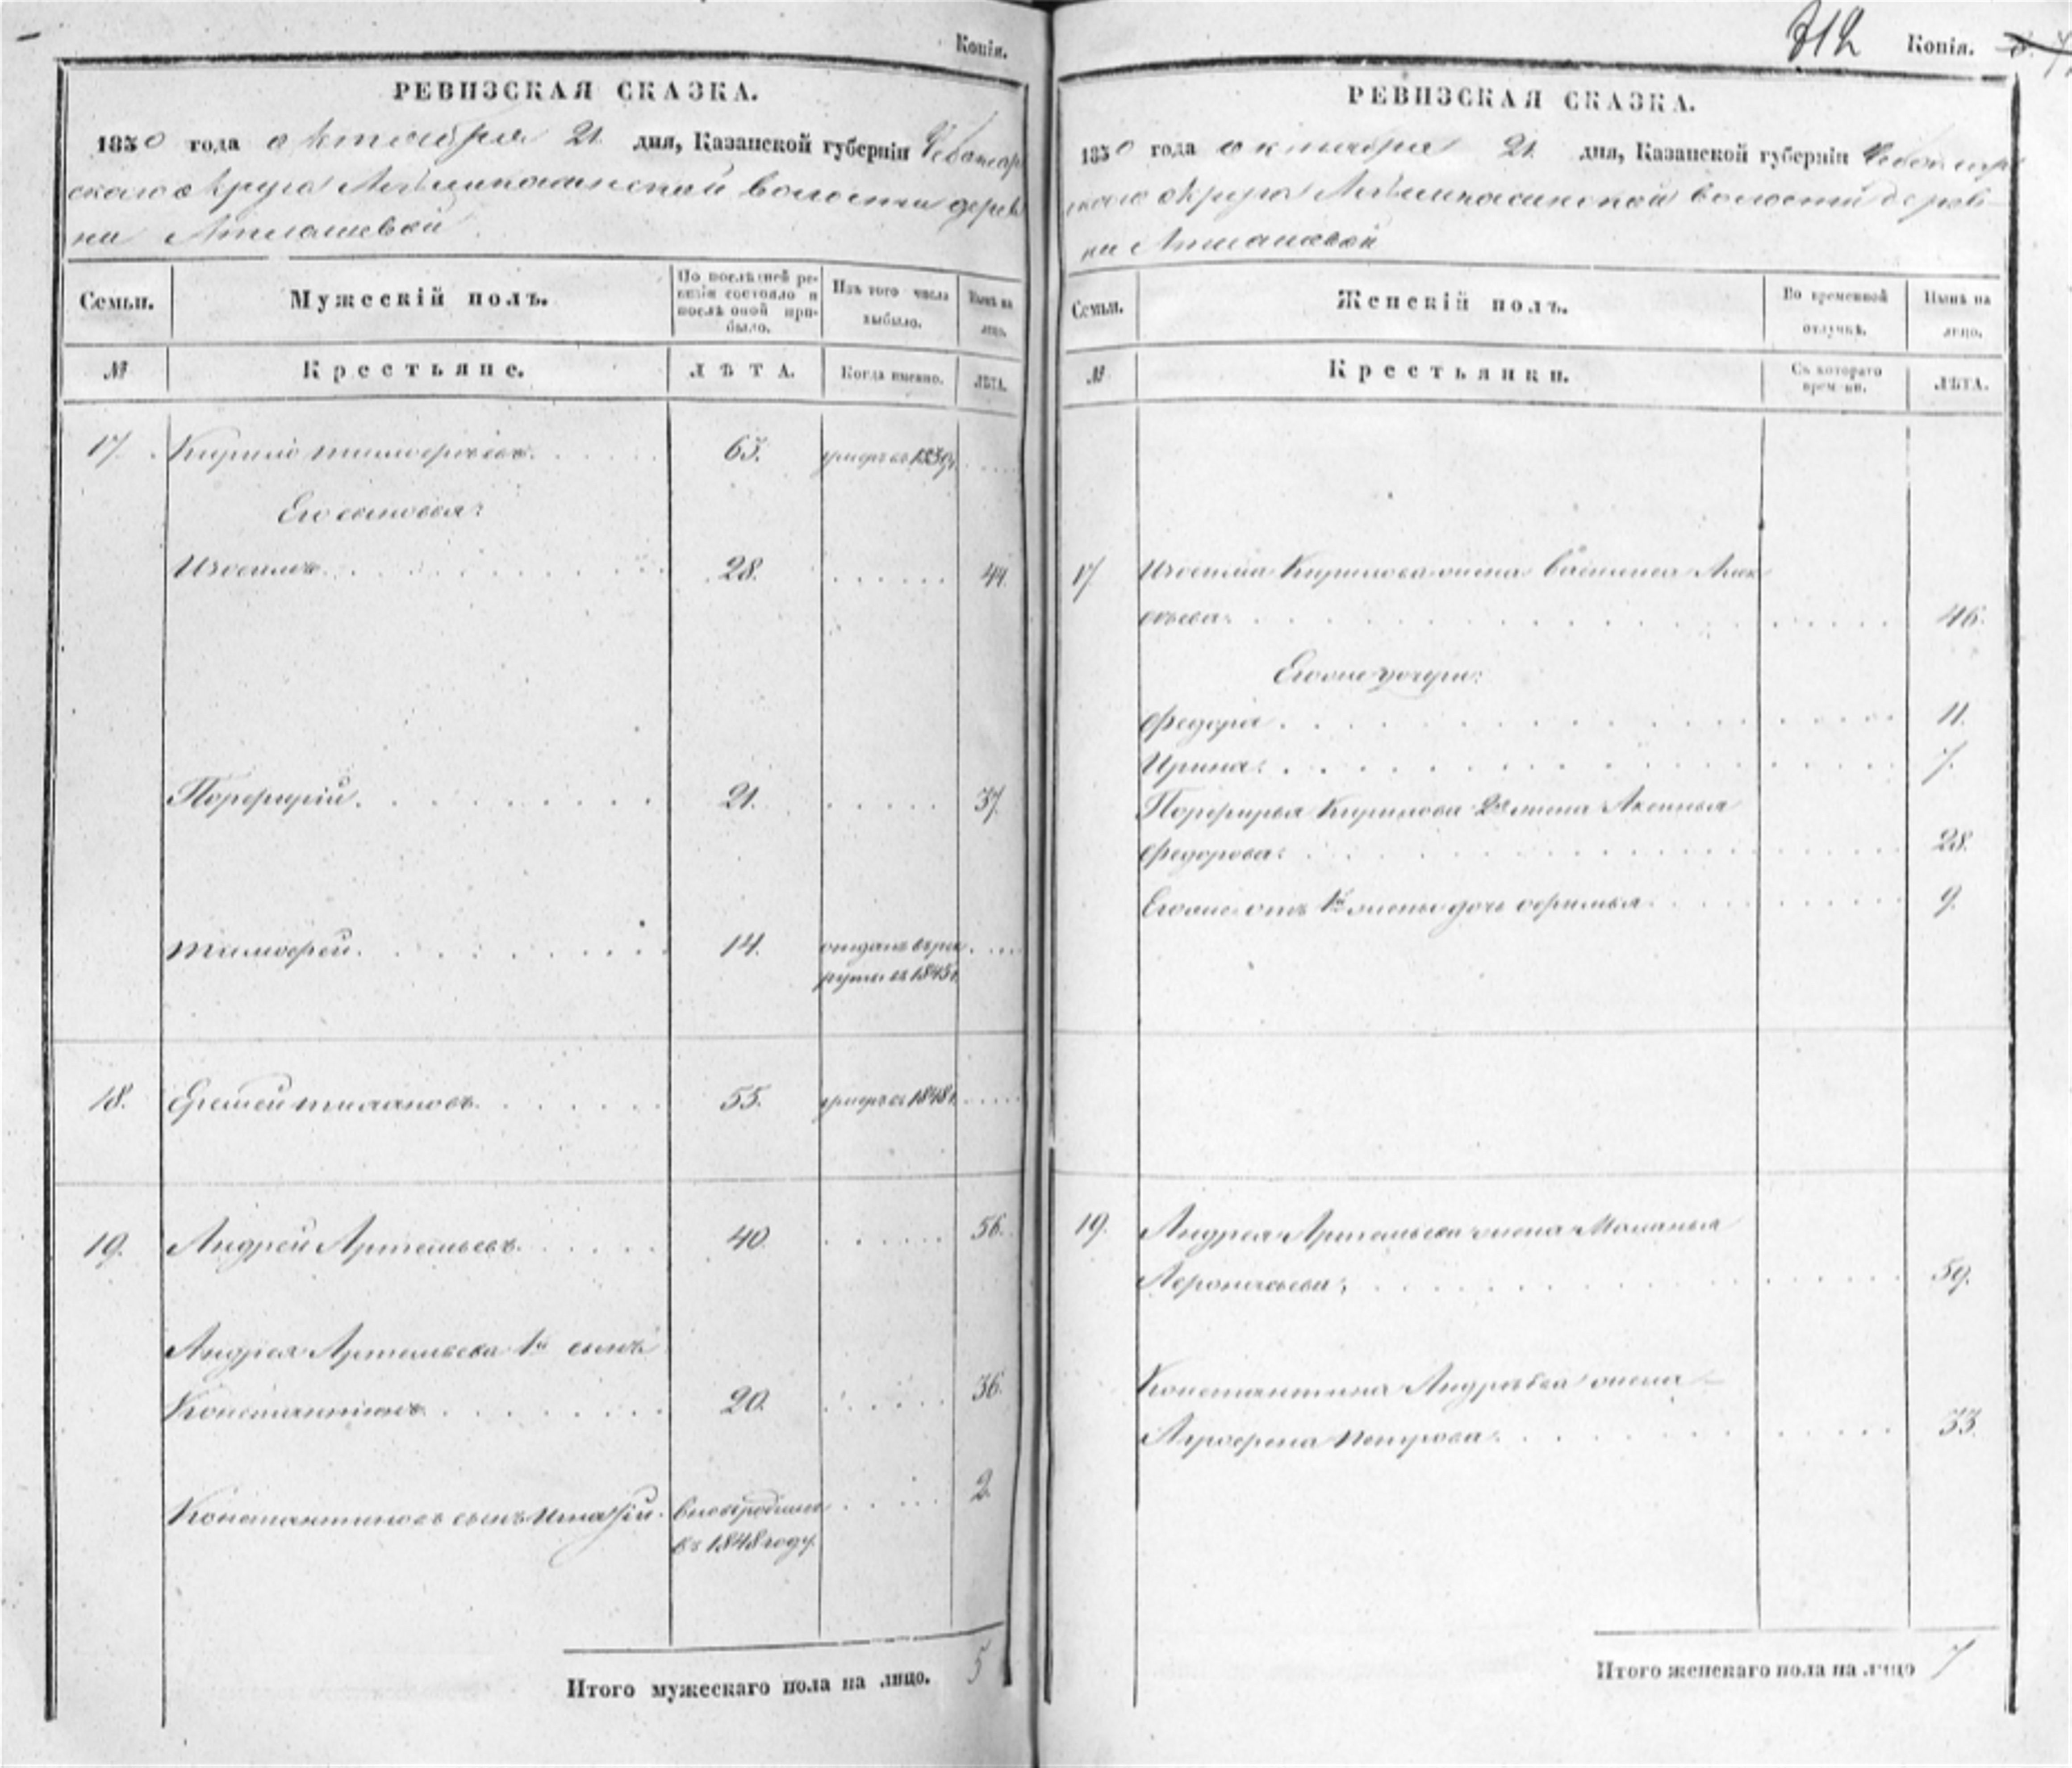 Копія.
РЕВИЗСКАЯ СКАЗКА.
1850 года октября 21 дня, Казанской губерніи Чебоксар
скаго округа волости дерев
ни Атлашевой
Семьи. Мужескій полъ. По послѣдней ре-
визіи состояло и
послѣ оной при-
было. Изъ того числа
выбыло. Нынѣ на
лицо.
№ Крестьяне. ЛѢТА. Когда именно. ЛѢТА.
17. Кирило Тимофѣевъ. 65. умеръ въ 1839г.
Его сыновья:
Изосимъ 28. 44.
Порфирій. 21. 37.
Тимофей. 14. отданъ въ рек
руты въ 1845г.
18. Еремей 55. умеръ въ 1848г.
19. Андрей Артемьевъ. 40. 56.
Андрея Артемьева 1й сынъ
Константинъ 20. 36.
Константиновъ сынъ Игнатій. вновь рожден
въ 1848 году. 2.
Итого мужескаго пола на лицо. 5
312 Копія.
РЕВИЗСКАЯ СКАЗКА.
1850 года октября 21 дня, Казанской губерніи Чебоксар
скаго округа волости дерев
ни Атлашевой
Семьи. Женскій полъ. Во временной
отлучкѣ. Нынѣ на
лицо.
№ Крестьянки. Съ котораго
времени. ЛѢТА.
17. Изосима Кирилова жена Василиса Алек
сѣева. 46.
Его же дочери:
Федора 11.
Ирина. 7.
Порфирья Кирилова 2я жена Аксинья
Федорова. 28.
Его же отъ 1й жены дочь Офимья 9.
19. Андрея Артемьева жена Маланья
Афонасьева. 59.
Константина Андрѣева жена
Агрофена Петрова. 33.
Итого женскаго пола на лицо 7